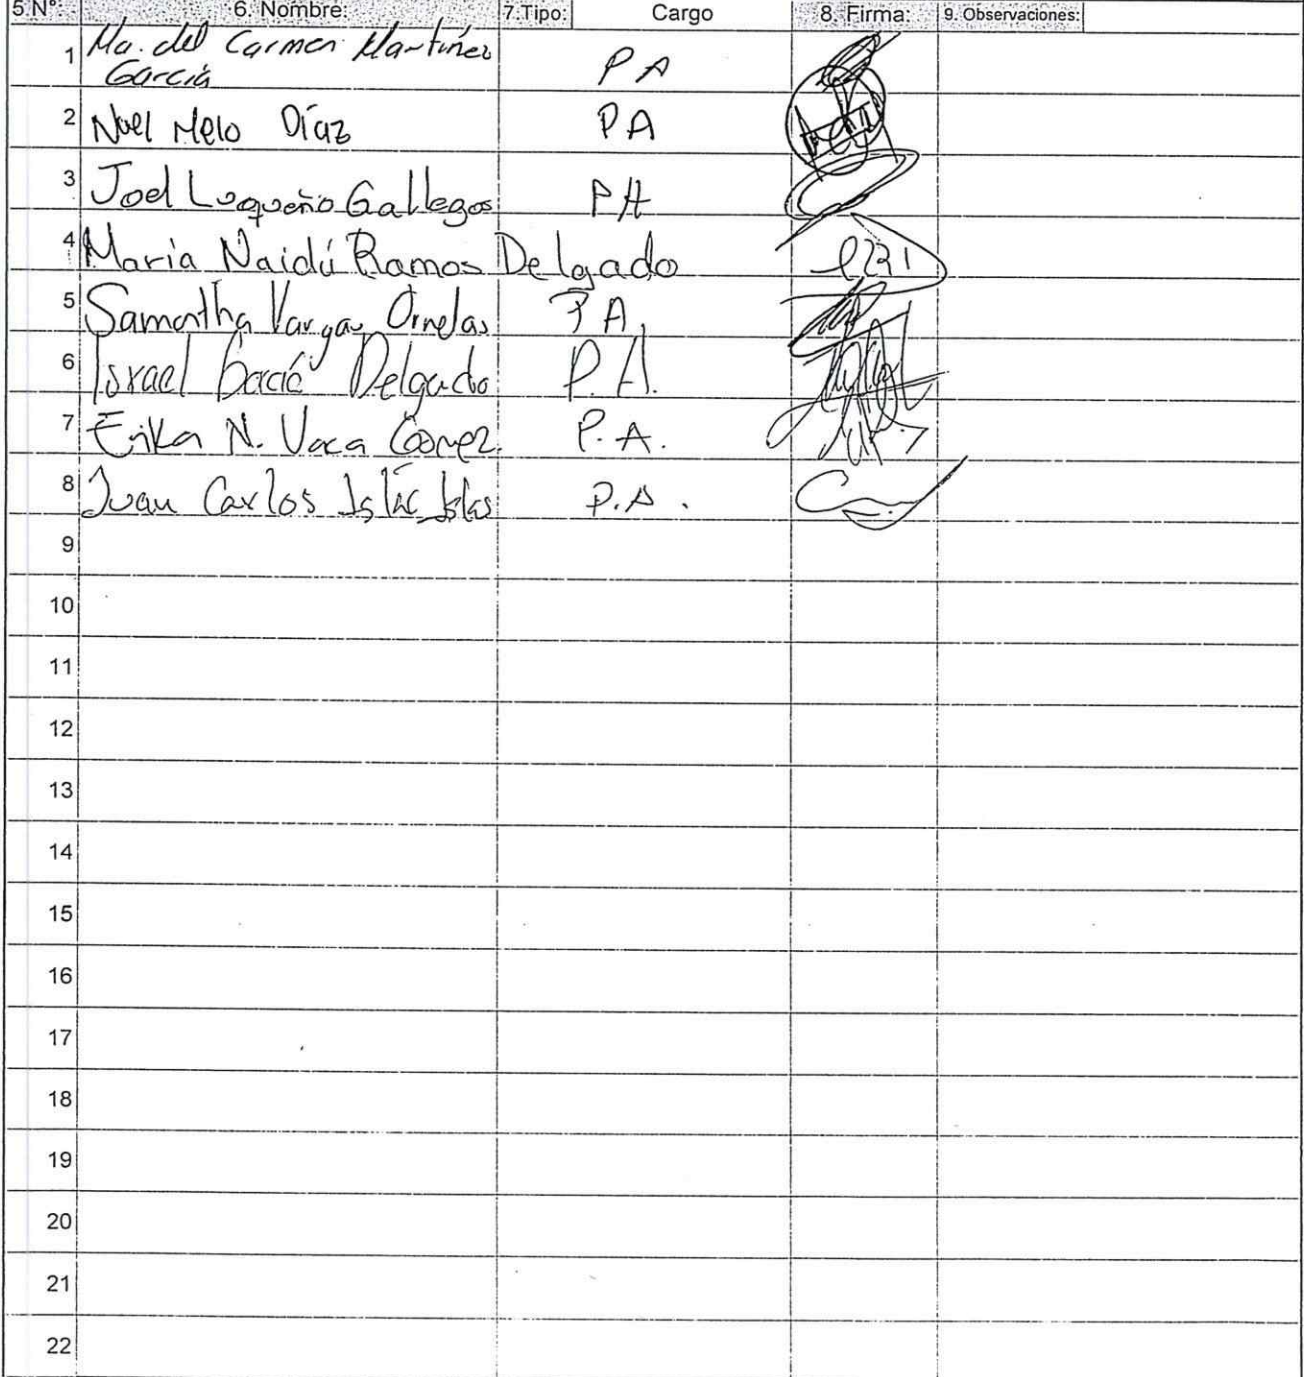 5 N°: 6. Nombre: 7.Tipo: Cargo 8. Firma: 9. Observaciones:
1 Ma. del Carmen Martínez
García PA
2 Noel Melo Díaz PA
3 Joel Luqueño Gallegos PA
4 Maria Naidú Ramos Delgado
5 Samantha Vargas Ornelas PA
6 Israel Delgado P.A.
7 Erika N. Vaca Gomez. P.A.
8 Juan Carlos Islas P.A.
9
10
11
12
13
14
15
16
17
18
19
20
21
22